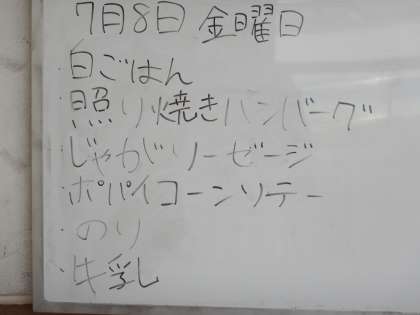 7月8日 金曜日
・白ごはん
・照り焼きハンバーグ
・じゃがリーゼージ
・ポパイコーンソテー
・のり
・牛乳